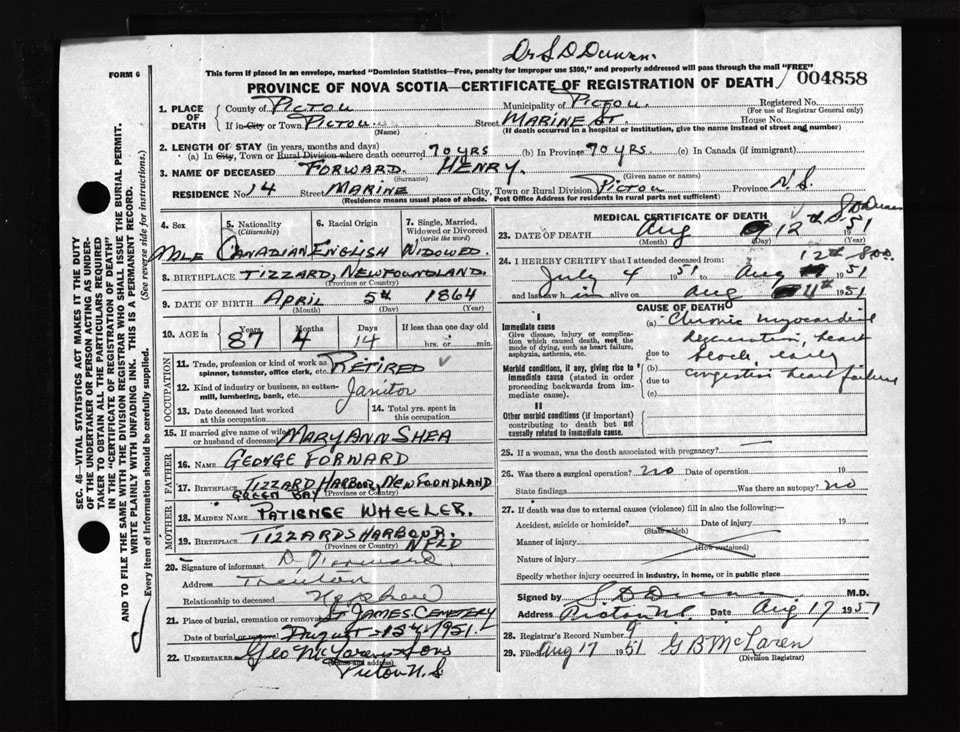 Dr S D Dunn.
FORM 6
This form if placed in an envelope, marked "Dominion Statistics—Free, penalty for improper use $300," and properly addressed will pass through the mail "FREE"
PROVINCE OF NOVA SCOTIA—CERTIFICATE OF REGISTRATION OF DEATH
004858
SEC. 46—VITAL STATISTICS ACT MAKES IT THE DUTY
OF THE UNDERTAKER OR PERSON ACTING AS UNDER-
TAKER TO OBTAIN ALL THE PARTICULARS REQUIRED
IN THE "CERTIFICATE OF REGISTRATION OF DEATH"
AND TO FILE THE SAME WITH THE DIVISION REGISTRAR WHO SHALL ISSUE THE BURIAL PERMIT.
WRITE PLAINLY WITH UNFADING INK. THIS IS A PERMANENT RECORD.
Every item of Information should be carefully supplied. (See reverse side for instructions.)
1. PLACE OF DEATH
County of PICTOU Municipality of PICTOU. Registered No.
(For use of Registrar General only)
If in City or Town PICTOU. Street MARINE ST. House No.
(Name) (If death occurred in a hospital or institution, give the name instead of street and number)
2. LENGTH OF STAY (in years, months and days)
(a) In City, Town or Rural Division where death occurred 70 YRS (b) In Province 70 YRS. (c) In Canada (if immigrant)
3. NAME OF DECEASED FORWARD. HENRY.
(Surname) (Given name or names)
RESIDENCE No. 14 Street MARINE City, Town or Rural Division PICTOU Province N.S.
(Residence means usual place of abode. Post Office Address for residents in rural parts not sufficient)
4. Sex MALE
5. Nationality (Citizenship) CANADIAN
6. Racial Origin ENGLISH
7. Single, Married, Widowed or Divorced (write the word) WIDOWED.
8. BIRTHPLACE TIZZARD, NEWFOUNDLAND.
(Province or Country)
9. DATE OF BIRTH APRIL 5th 1864
(Month) (Day) (Year)
10. AGE in Years 87 Months 4 Days 14 If less than one day old hrs. or min.
OCCUPATION
11. Trade, profession or kind of work as spinner, teamster, office clerk, etc. RETIRED
12. Kind of industry or business, as cotton-mill, lumbering, bank, etc. Janitor
13. Date deceased last worked at this occupation
14. Total yrs. spent in this occupation
15. If married give name of wife or husband of deceased MARY ANN SHEA
FATHER
16. NAME GEORGE FORWARD
17. BIRTHPLACE TIZZARD HARBOUR, NEWFOUNDLAND
GREEN BAY (Province or Country)
MOTHER
18. MAIDEN NAME PATIENCE WHEELER.
19. BIRTHPLACE TIZZARDS HARBOUR.
(Province or Country) NFLD
20. Signature of informant D. Forward.
Address Trenton
Relationship to deceased Nephew
21. Place of burial, cremation or removal St JAMES CEMETERY
Date of burial or removal August 15th 1951.
22. UNDERTAKER Geo McLaren & Sons
(Name and address)
Pictou N.S
MEDICAL CERTIFICATE OF DEATH
S D Dunn
23. DATE OF DEATH Aug 12th 1951
(Month) (Day) (Year)
12th S.D.D.
24. I HEREBY CERTIFY that I attended deceased from:
July 4 1951 to Aug 1951
and last saw h im alive on Aug 11th 1951
CAUSE OF DEATH
I
Immediate cause
Give disease, injury or complication which caused death, not the mode of dying, such as heart failure, asphyxia, asthenia, etc.
(a) Chronic myocardial
degeneration, heart
due to block early
Morbid conditions, if any, giving rise to immediate cause (stated in order proceeding backwards from immediate cause).
(b)
due to congestive heart failure
(c)
II
Other morbid conditions (if important) contributing to death but not causally related to immediate cause.
25. If a woman, was the death associated with pregnancy?
26. Was there a surgical operation? no Date of operation 19
State findings Was there an autopsy? no
27. If death was due to external causes (violence) fill in also the following:—
Accident, suicide or homicide? Date of injury 19
(State which)
Manner of injury
(How sustained)
Nature of injury
Specify whether injury occurred in industry, in home, or in public place
Signed by S D Dunn M.D.
Address Pictou N.S. Date Aug 17 1951
28. Registrar's Record Number 9
29. Filed Aug 17 1951 G B McLaren
(Division Registrar)